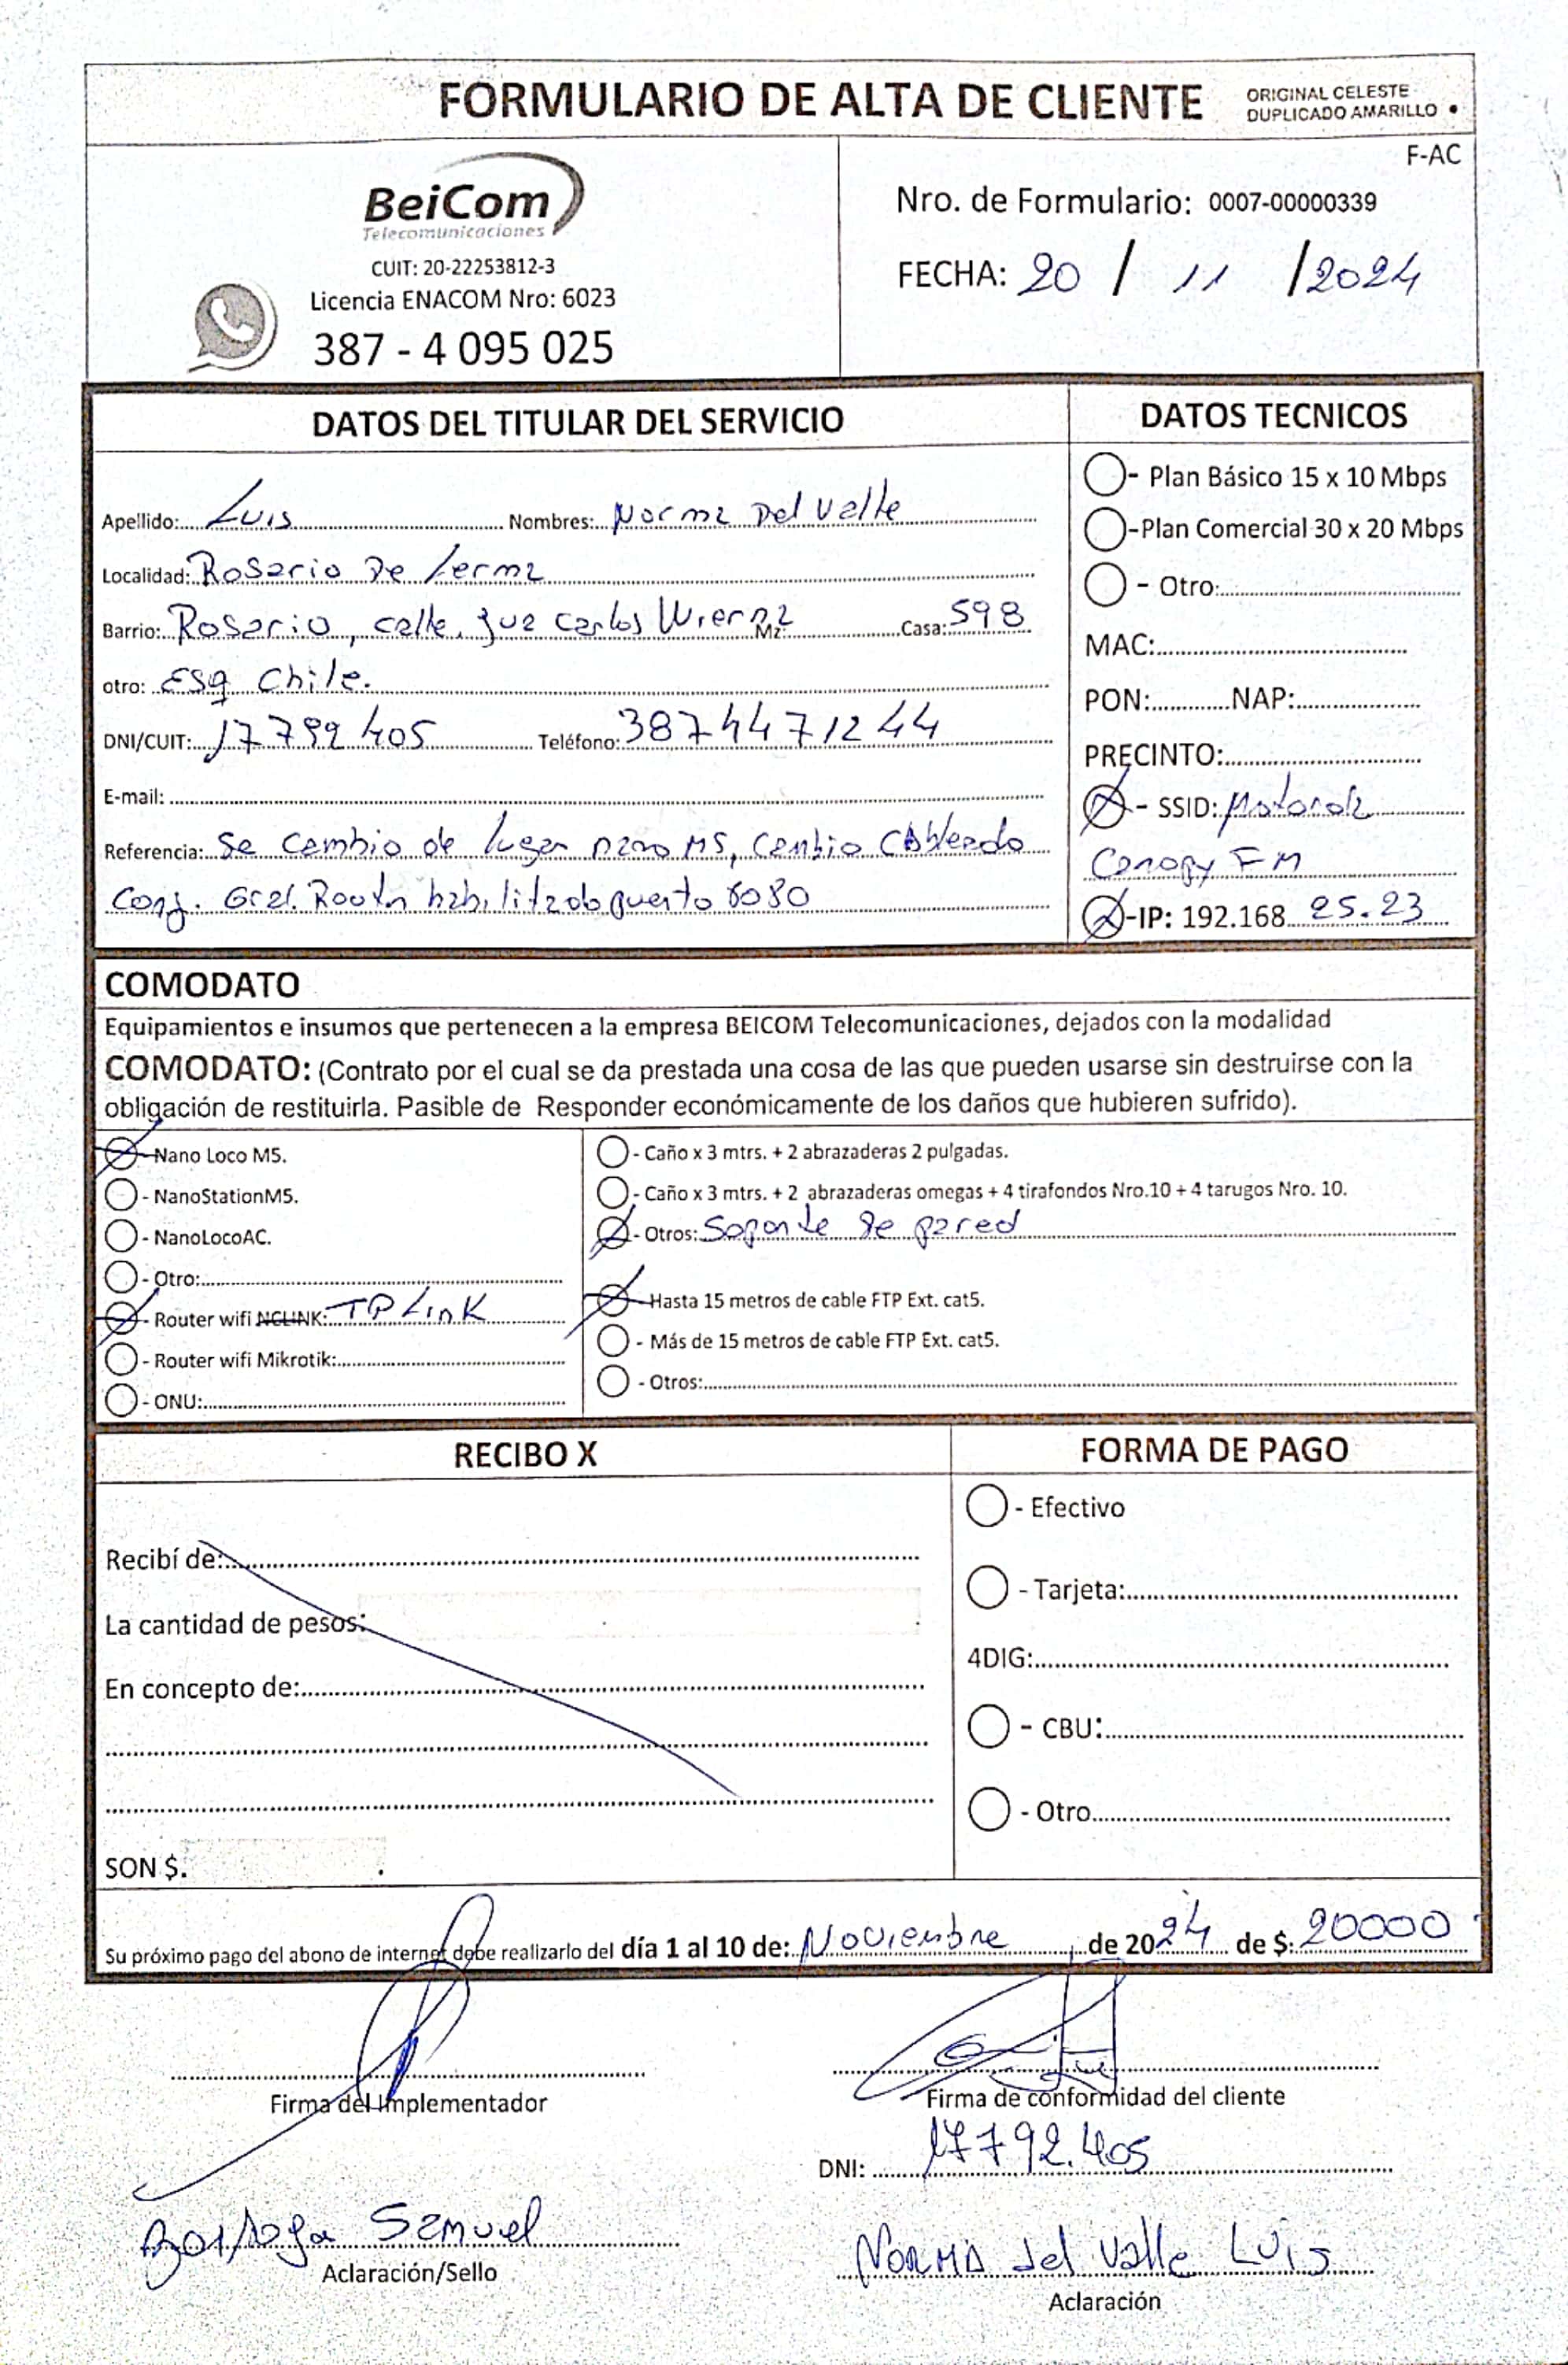 FORMULARIO DE ALTA DE CLIENTE
ORIGINAL CELESTE
DUPLICADO AMARILLO
F-AC
BeiCom
Telecomunicaciones
CUIT: 20-22253812-3
Licencia ENACOM Nro: 6023
387 - 4 095 025
Nro. de Formulario: 0007-00000339
FECHA: 20 / 11 / 2024
DATOS DEL TITULAR DEL SERVICIO
Apellido: Luis Nombres: Norma Del Valle
Localidad: Rosario De Lerma
Barrio: Rosario, calle, Jua Carlos Wierna Mz: Casa: 598
otro: Esq Chile.
DNI/CUIT: 17799405 Teléfono: 3874471244
E-mail:
Referencia: Se Cambio de lugar nano M5, Cambio Cableado
Conf. Gral. Router habilitado puerto 8080
DATOS TECNICOS
- Plan Básico 15 x 10 Mbps
-Plan Comercial 30 x 20 Mbps
- Otro:
MAC:
PON: NAP:
PRECINTO:
- SSID: Motorola
Canopy FM
-IP: 192.168 25.23
COMODATO
Equipamientos e insumos que pertenecen a la empresa BEICOM Telecomunicaciones, dejados con la modalidad
COMODATO: (Contrato por el cual se da prestada una cosa de las que pueden usarse sin destruirse con la
obligación de restituirla. Pasible de Responder económicamente de los daños que hubieren sufrido).
-Nano Loco M5.
- NanoStationM5.
- NanoLocoAC.
- Otro:
- Router wifi NCLINK: TP Link
- Router wifi Mikrotik:
- ONU:
- Caño x 3 mtrs. + 2 abrazaderas 2 pulgadas.
- Caño x 3 mtrs. + 2 abrazaderas omegas + 4 tirafondos Nro.10 + 4 tarugos Nro. 10.
- Otros: Soporte de pared
-Hasta 15 metros de cable FTP Ext. cat5.
- Más de 15 metros de cable FTP Ext. cat5.
- Otros:
RECIBO X
Recibí de:
La cantidad de pesos:
En concepto de:
SON $.
FORMA DE PAGO
- Efectivo
- Tarjeta:
4DIG:
- CBU:
- Otro
Su próximo pago del abono de internet debe realizarlo del día 1 al 10 de: Noviembre de 2024 de $: 20000
Firma del Implementador
Firma de conformidad del cliente
DNI: 17792.405
Samuel
Aclaración/Sello
NORMA del Valle LUis
Aclaración